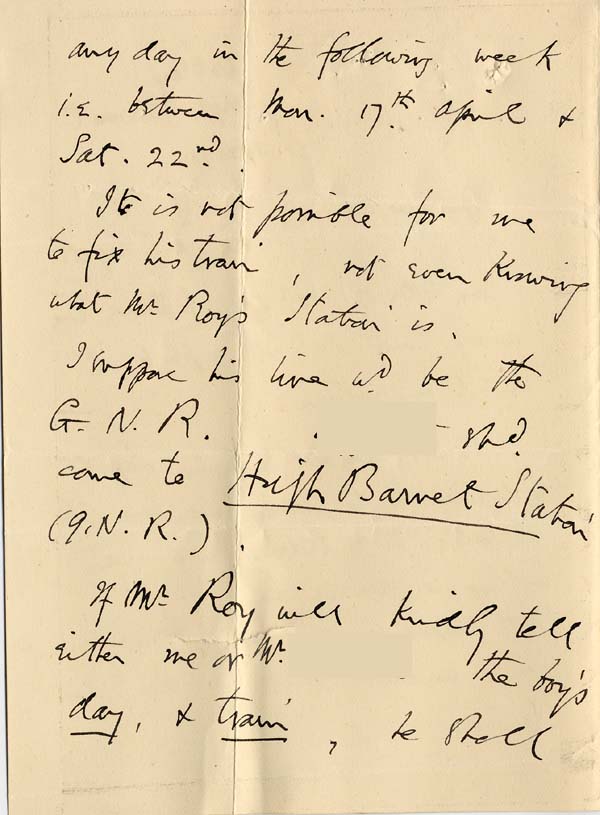 any day in the following week
i.e. between Mon. 17th April &
Sat. 22nd.
It is not possible for me
to fix his train, not even knowing
what Mr Roy's Station is.
I suppose his line wd be the
G. N. R. shd.
come to High Barnet Station
(G.N.R.).
If Mr Roy will kindly tell
either me or Mr.
the boy's
day, & train, he shall